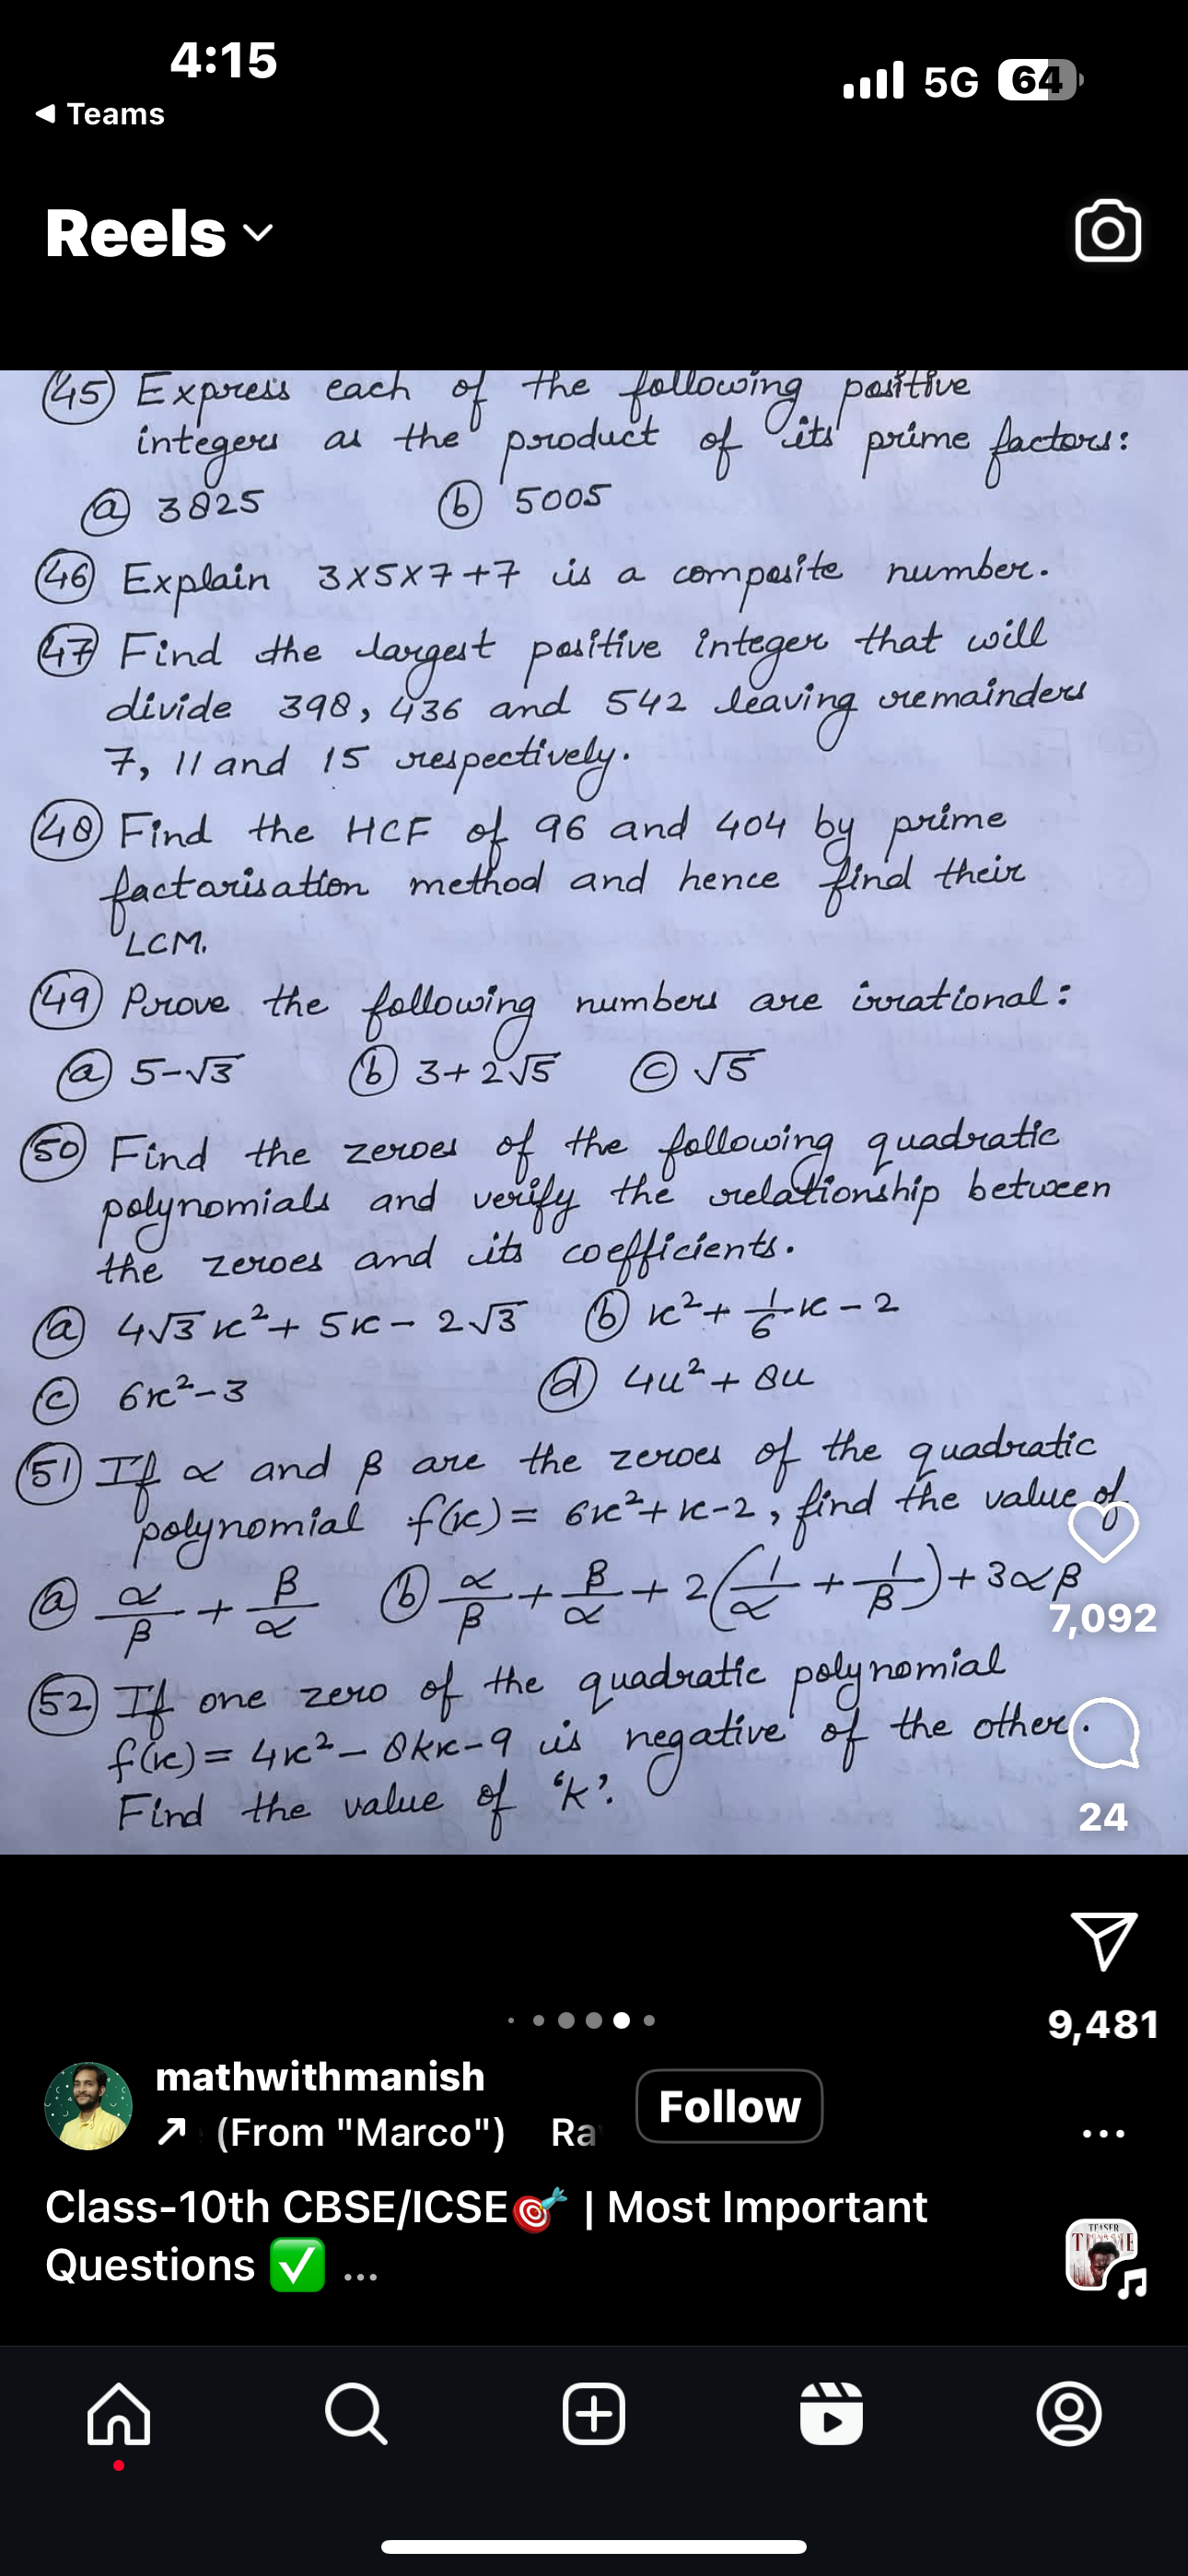 4:15
5G 64
◀ Teams
Reels
45 Express each of the following positive
integers as the product of its prime factors:
a 3825 b 5005
46 Explain 3×5×7+7 is a composite number.
47 Find the largest positive integer that will
divide 398, 436 and 542 leaving remainders
7, 11 and 15 respectively.
48 Find the HCF of 96 and 404 by prime
factorisation method and hence find their
LCM.
49 Prove the following numbers are irrational:
a 5-√3 b 3+2√5 c √5
50 Find the zeroes of the following quadratic
polynomials and verify the relationship between
the zeroes and its coefficients.
a 4√3x²+5x-2√3 b x²+1/6x-2
c 6x²-3 d 4u²+8u
51 If α and β are the zeroes of the quadratic
polynomial f(x)=6x²+x-2, find the value of
a α/β+β/α b α/β+β/α+2(1/α+1/β)+3αβ
7,092
52 If one zero of the quadratic polynomial
f(x)=4x²-8kx-9 is negative of the other.
Find the value of 'k'.
24
9,481
mathwithmanish
(From "Marco") Ra
Follow
Class-10th CBSE/ICSE🎯 | Most Important
Questions ✅ ...
TEASER